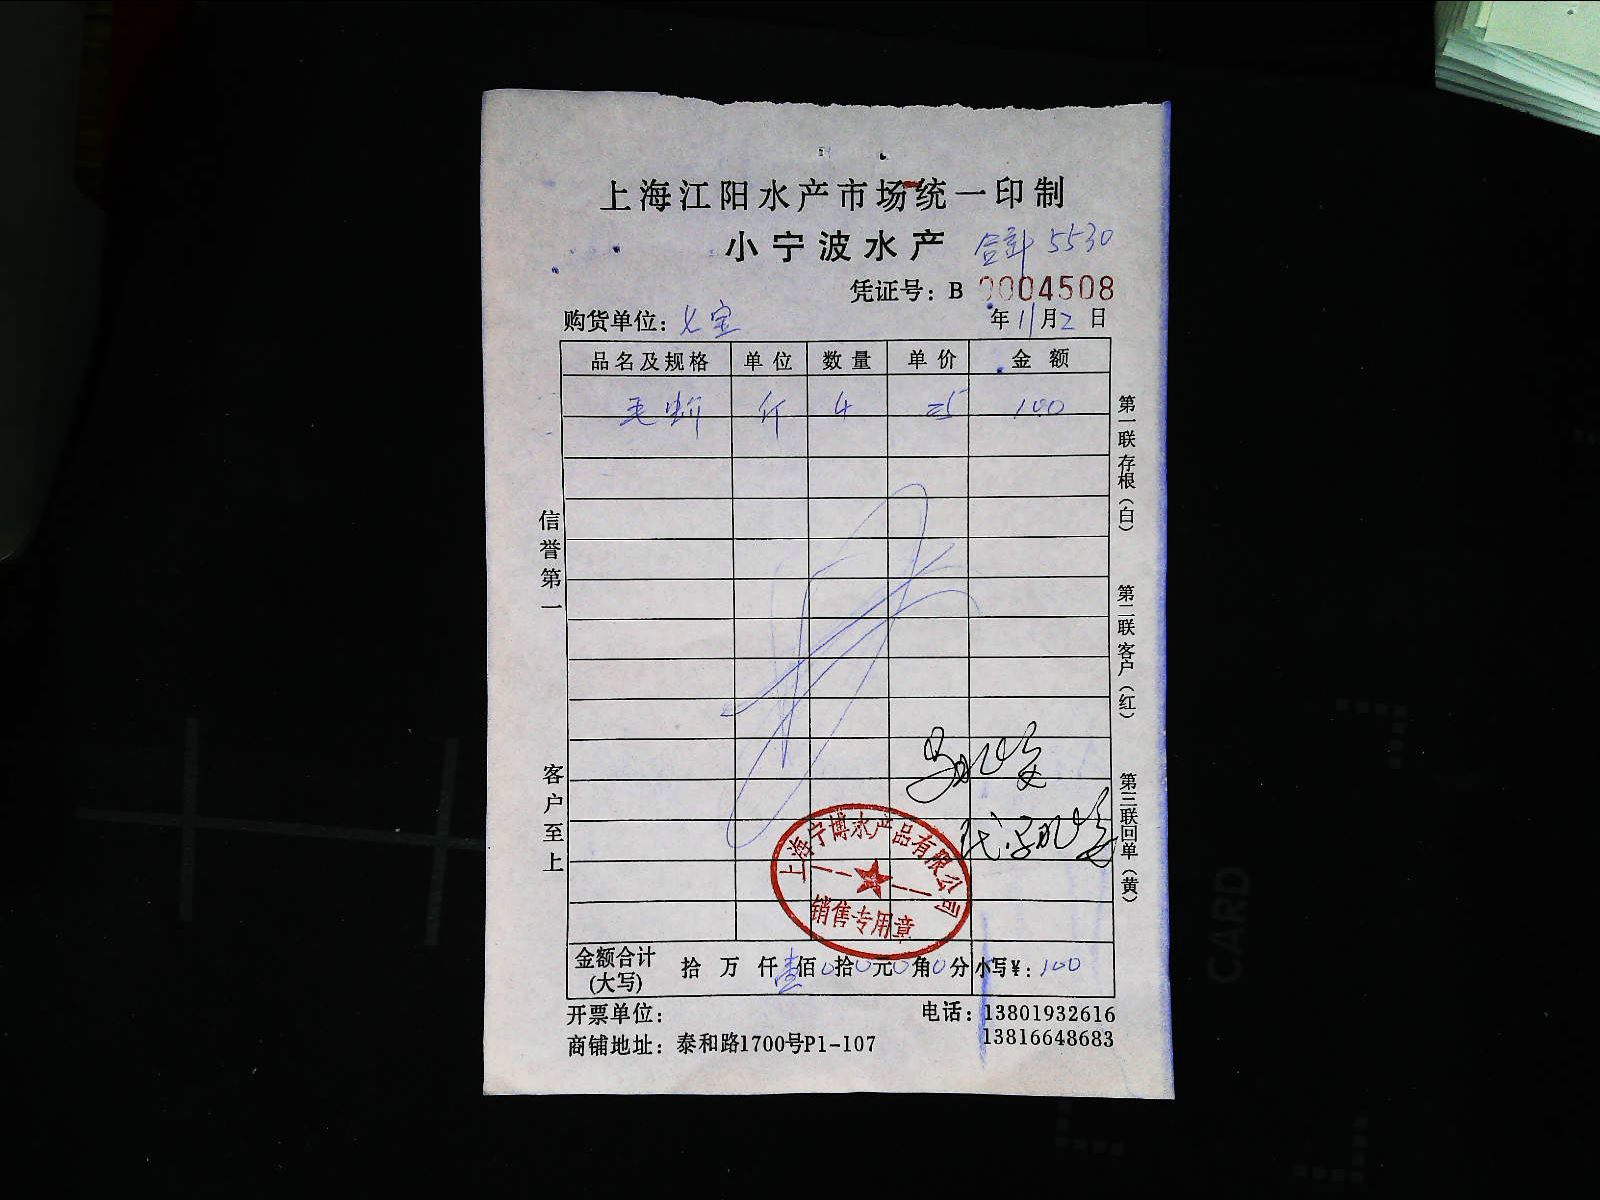 上海江阳水产市场统一印制
小宁波水产
合计 5530
凭证号：B 0004508
购货单位：七宝
年11月2日
品名及规格 单位 数量 单价 金额
毛蚶 斤 4 25 100
信誉第一
客户至上
第一联存根（白）
第二联客户（红）
第三联回单（黄）
上海宁博水产品有限公司
销售专用章
金额合计（大写） 拾 万 仟 壹佰0拾0元0角0分 小写¥：100
开票单位：
电话：13801932616
13816648683
商铺地址：泰和路1700号P1-107
CARD